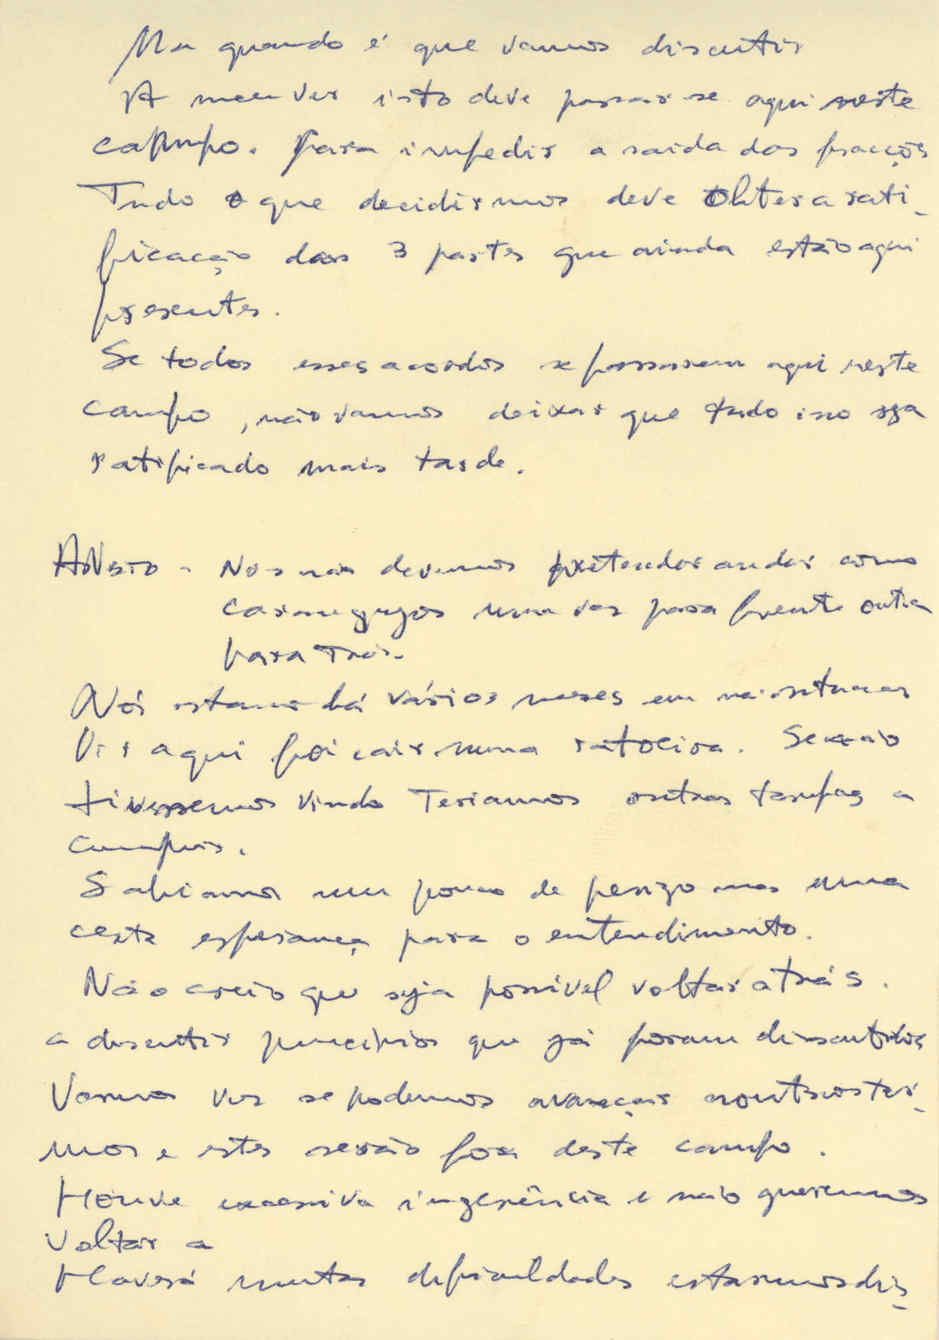 Mas quando é que vamos discutir
A meu ver isto deve passar-se aqui neste
campo. Para impedir a saida das fracções
Tudo o que decidirmos deve obter a rati-
ficação das 3 partes que ainda estão aqui
presentes.
Se todos esses acordos se passaram aqui neste
campo, não vamos deixar que tudo isso seja
ratificado mais tarde.
A. Neto - Nós não devemos pretender andar como
caranguejos uma vez para frente outra
para trás.
Nós estamos há vários meses em
Vir aqui foi cair numa ratoeira. Se não
tivessemos vindo Teriamos outras tarefas a
cumprir.
Sabiamos um pouco de perigo mas uma
certa esperança para o entendimento.
Não creio que seja possivel voltar atrás.
a discutir principios que já foram discutidos
Vamos ver se podemos avançar noutros ter-
mos e estes serão fora deste campo.
Houve excessiva ingerência e não queremos
voltar a
Haverá muitas dificuldades estarmos dis-